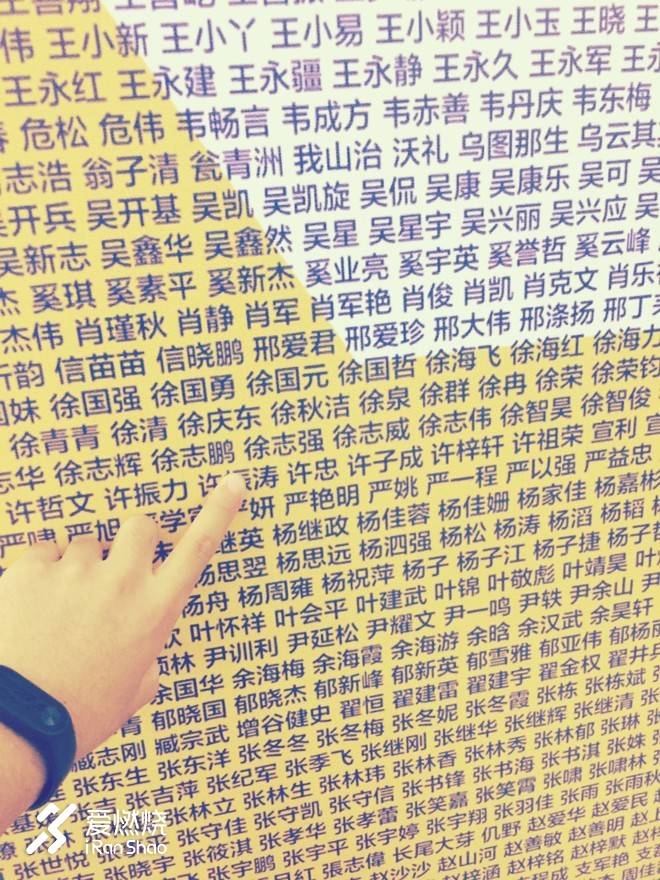 伟 王小新 王小丫 王小易 王小颖 王小玉 王晓
王永红 王永建 王永疆 王永静 王永久 王永军
危松 危伟 韦畅言 韦成方 韦赤善 韦丹庆 韦东梅
志浩 翁子清 瓮青洲 我山治 沃礼 乌图那生 乌云其
吴开兵 吴开基 吴凯 吴凯旋 吴侃 吴康 吴康乐 吴可
吴新志 吴鑫华 吴鑫然 吴星 吴星宇 吴兴丽 吴兴应
杰 奚琪 奚素平 奚新杰 奚业亮 奚宇英 奚誉哲 奚云峰
杰伟 肖瑾秋 肖静 肖军 肖军艳 肖俊 肖凯 肖克文 肖乐
韵 信苗苗 信晓鹏 邢爱君 邢爱珍 邢大伟 邢涤扬 邢丁
国妹 徐国强 徐国勇 徐国元 徐国哲 徐海飞 徐海红 徐海力
徐青青 徐清 徐庆东 徐秋洁 徐泉 徐群 徐冉 徐荣 徐荣钧
志华 徐志辉 徐志鹏 徐志强 徐志威 徐志伟 徐智昊 徐智俊
许哲文 许振力 许振涛 许忠 许子成 许梓轩 许祖荣 宣利
严啸 严旭 妍 严艳明 严姚 严一程 严以强 严益忠
继英 杨继政 杨佳蓉 杨佳姗 杨家佳 杨嘉彬
杨思翌 杨思远 杨泗强 杨松 杨涛 杨滔 杨韬
杨舟 杨周雍 杨祝萍 杨子 杨子江 杨子捷
叶怀祥 叶会平 叶建武 叶锦 叶敬彪 叶靖昊
林 尹训利 尹延松 尹耀文 尹一鸣 尹轶 尹余山
余国华 余海梅 余海霞 余海游 余晗 余汉武 余昊轩
青 郁晓国 郁晓杰 郁新峰 郁新英 郁雪雅 郁亚伟 郁杨
臧志刚 臧宗武 增谷健史 翟恒 翟建雷 翟建宇 翟金权 翟井
张东生 张东洋 张冬冬 张冬梅 张冬妮 张冬霞 张栋 张栋斌
张吉萍 张纪军 张季飞 张继刚 张继华 张继辉 张继清
张林立 张林生 张林玮 张林香 张林秀 张林郁 张琳
张守佳 张守凯 张守信 张书锋 张书海 张书淇 张姝
张世悦 张孝华 张孝蕾 张笑嘉 张笑霄 张啸 张啸林
张晓宇 张筱淇 张宇平 张宇婷 张宇翔 张羽佳 张雨 张雨秋
张宇鹏 張志偉 长尾大芽 仉野 赵爱华 赵爱民
赵沙沙 赵山河 赵善敏 赵善明
赵梓涵 赵梓铭 赵梓默
爱燃烧
iRanShao